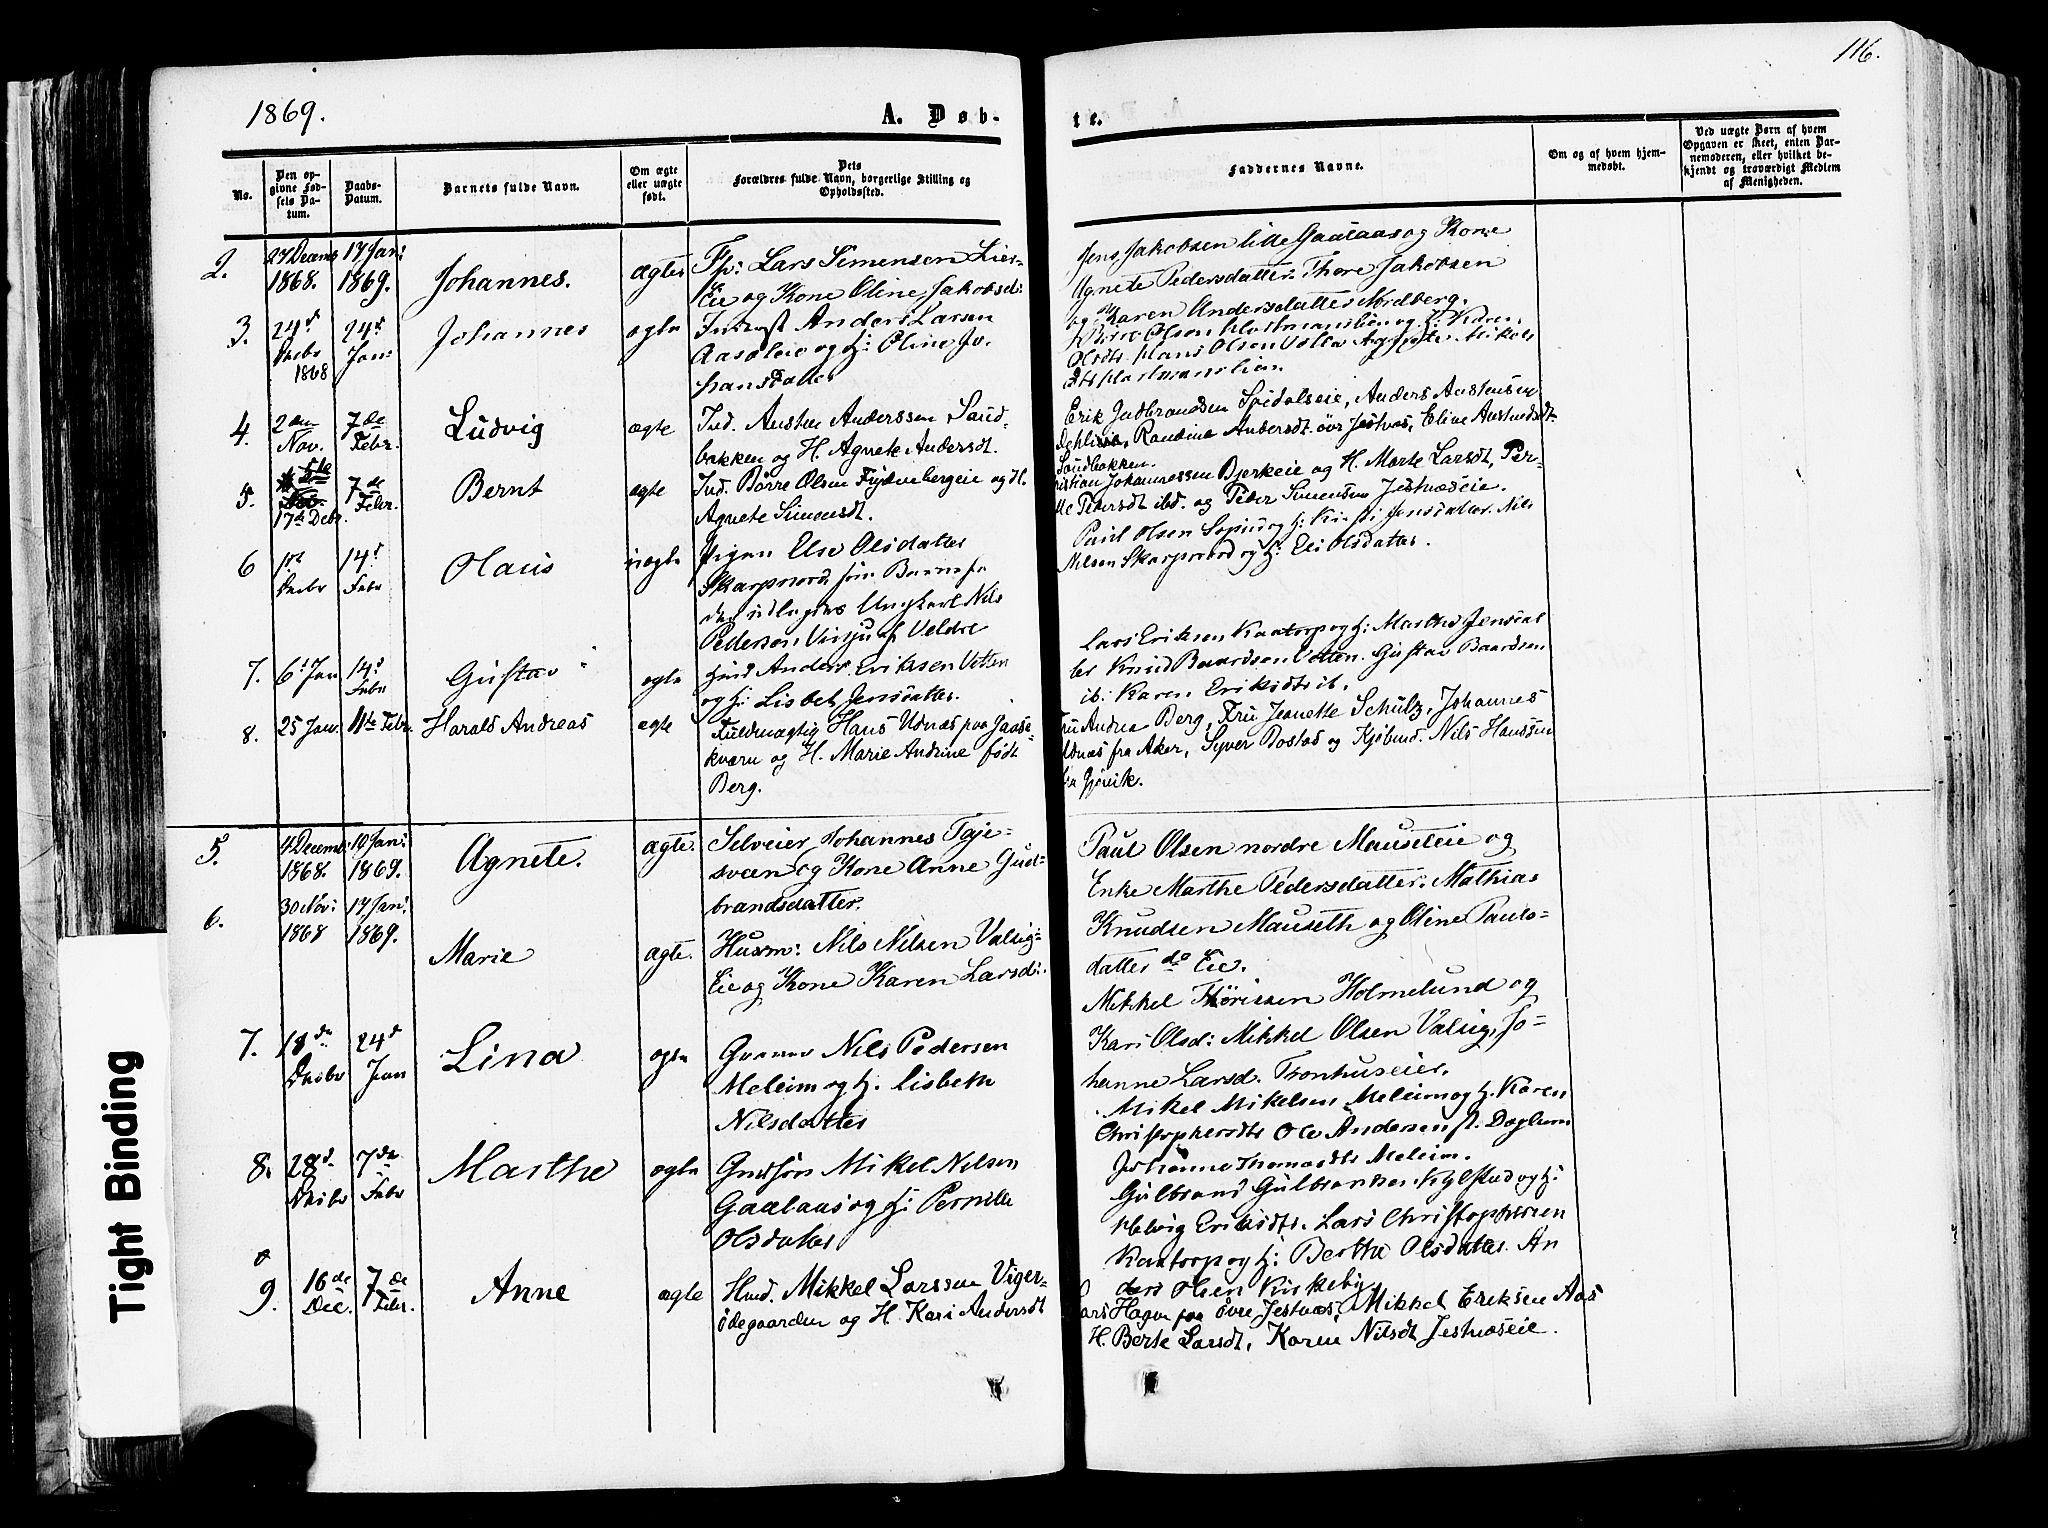 116.
1869.
A. Døb-
te.
No.
Den op-
givne Fød-
sels Da-
tum.
Daabs-
Datum.
Barnets fulde Navn.
Om ægte
eller uægte
født.
Dets
Forældres fulde Navn, borgerlige Stilling og
Opholdssted.
Faddernes Navne.
Om og af hvem hjem-
medøbt.
Ved uægte Børn af hvem
Opgaven er skeet, enten Bar-
nemoderen, eller hvilket be-
kjendt og troværdigt Medlem
af Menigheden.
2.
27 Decemb
1868.
17 Jan:
1869.
Johannes.
ægte
Fp: Lars Simensen Lier-
Eie og Kone Oline Jakobsd:
Jens Jakobsen lille Gaalaas og Kone
Agnete Pedersdatter. Thore Jakobsen
og Karen Andersdatter Nordberg.
3.
24d
Decbr
1868
24d
Jan:
Johannes
ægte
Anders Larsen
og H: Oline Jo-
hansdatter
Olsen og H: Karen
Olsdtr. Hans Olsen Mikels
4.
2den
Nov.
7de
Febr.
Ludvig
ægte
Ind. Austen Anderssen Sand-
bakken og H. Agnete Andersdt.
Erik Gudbrandsen Spidalseie, Anders Austensen
Dehlieie, Randine Andersdt. övr Jestnes, Eline Austensdt
Sandbakken.
5.
17de Debr.
7de
Febr.
Bernt
ægte
Ind. Börre Olsen Frydenbergeie og H.
Agnete Simensdt.
Johannessen Bjerkeie og H. Marte Larsdt, Per-
Pedersdt ibd. og Peter Simensen Jestnæseie.
6
1ste
Decbr
14d
Febr
Olaus
uægte
Pigen Else Olsdatter
Skarpnord, som Barnefa
der udlægges Ungkarl Nils
Pedersen Vinju af Veldre
Paul Olsen og H: Kirsti Jensdatter. Nils
Nilsen Skarpnord og H: Eli Olsdatter.
7.
6d Jan
14d
Febr
Gustav
ægte
Husm Anders Eriksen Vetten
og H: Lisbet Jensdatter.
Lars Eriksen Kantorp og H: Marthe Jensdat
ter Knud Baardsen Vetten. Gustav Baardsen
ib: Karen Eriksdtr ib.
8.
25 Jan.
11te Febr.
Harald Andreas
ægte
Fuldmægtig Hans Udnæs paa Jaase-
kværn og H. Marie Andrine født
Berg.
Fru Andrea Berg, Fru Jeanette Schulz, Johannes
Udnæs fra Aker, Syver Bostad og Kjöbmd. Nils Hanssen
fra Gjövik.
5.
4 Decemb:
1868.
10 Jan:
1869.
Agnete.
ægte.
Selveier Johannes Taje-
sveen og Kone Anne Gud-
brandsdatter.
Paul Olsen nordre Mauseteie og
Enke Marthe Pedersdatter. Mathias
Knudsen Mauseth og Oline Pauls-
datter do Eie.
6.
30 Nov:
1868
17 Jan:
1869.
Marie
ægte.
Husm: Nils Nilsen Valsig-
Eie og Kone Karen Larsd:
Mikkel Thorissen Holmelund og
Kari Olsd: Mikkel Olsen Valsig, Jo-
hanne Larsd. Tronhuseier.
7.
18de
Decbr
24d
Jan
Lina
ægte
Gaarm Nils Pedersen
Meleim og H. Lisbeth
Nilsdatter
Mikel Mikelsen Meleim og H. Karen
Christophersdtr Ole Andersen Doglum
Johanne Thomasdtr Meleim.
8.
28d
Decbr
7de
Febr
Marthe
ægte
Mikel Nilsen
Gaalaas og H: Pernille
Olsdatter
Gulbrand Gulbrandsen Kylstad og H:
Helvig Eriksdtr. Lars Christophersen
Kantorp og H: Berthe Olsdatter. An
ders Olsen Kirkeby
9.
16de
Dec.
7de
Febr.
Anne
ægte
Husd. Mikkel Larssen Viger-
ödegaarden og H. Kari Andersdt
Lars Hagen paa övre Jestnæs, Mikkel Eriksen Aas
H. Berte Larsdt, Karen Nilsdt Jestnæseie.
Tight Binding